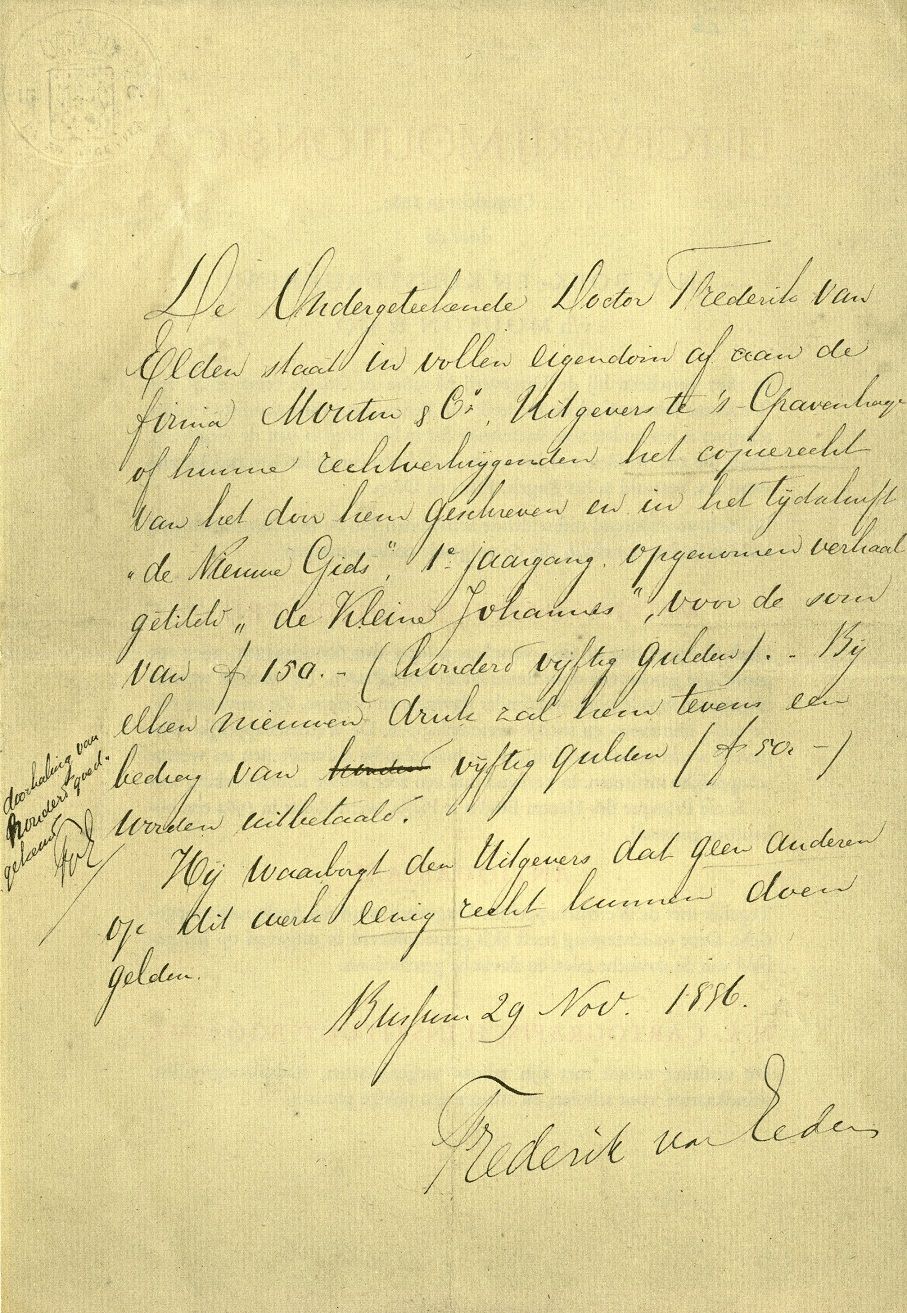 De Ondergeteekende Doctor Frederik van
Eeden staat in vollen eigendom af aan de
firma Mouton & Co., Uitgevers te 's-Gravenhage
of hunne rechtverkrijgenden het copierecht
van het door hem geschreven en in het tijdschrift
"de Nieuwe Gids", 1e jaargang. opgenomen verhaal
getiteld „de Kleine Johannes", voor de som
van f 150.- (honderd vijftig gulden). - Bij
elken nieuwen druk zal hem tevens een
bedrag van honderd vijftig gulden (f 50.-)
worden uitbetaald.
doorhaling van
honderd goed-
gekeurd
FvE
Hij waarborgt den Uitgevers dat geen anderen
op dit werk eenig recht kunnen doen
gelden.
Bussum 29 Nov. 1886.
Frederik van Eeden